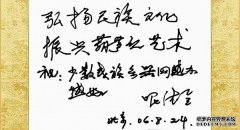 弘扬民族文化
振兴葫芦丝艺术
祝：少数民族乐器网越办
越好
北京 06.8.24.